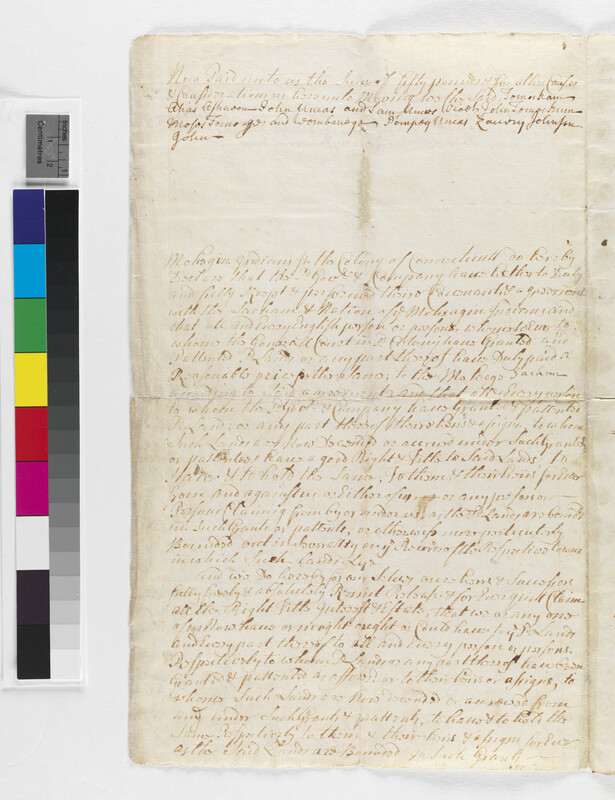 Now Paid unto us the Sum of fifty pounds & for other Causes
& Considerations us hereunto Moving we the Said
John Uncas and Sam Uncas John
Moses and Pompey Uncas Zacary Johnson
John
Mohegin Indians in the Colony of Connecticutt do hereby
Declare that the sd Govr & Company have hitherto Duly
and fully Keept & performed there Covenants & agreement
with the Sachem & Nation of sd Mohegin Indians and
that all and Every English person or persons whomsoever to
whome the General Court in sd Colony have Granted and
Pattented sd Lands or any part thereof have Duly paid a
Reasonable price to the Mohegin Sachem
according to Said agreement and that all & Every person
to whom the sd Govr & Company have Granted & pattented
sd Lands or any part thereof their heirs & assigns to whom
Such Lands are Now Decended or accrued under Such Grants
or pattents have a good Right & title to Said Lands to
Have & to hold the Same to them & their heirs for Ever
from and against us or Either of us or any person or
Persons Claiming from by or under us as the sd Lands are bounded
in Such Grants or pattents or otherwise more perticularly
Bounded out in Severalty on ye Records of the Respective towns
in which Such Lands Lye
And we Do hereby for our Selves our heirs & Succession
fully freely & absolutely Remit Release & for Ever quit Claime
all the Right title Interest & Estate that we or any one
of us Now have or might ought or Could have in sd Lands
and Every part thereof to all and Every person or persons
Respectively to whom sd Lands or any part thereof have been
Granted & pattented as afforesd or to their heirs or assigns, to
whome Such Lands are Now decended or accrued from
and under Such Grants & pattents, to have & to hold the
Same Respectively to them & their heirs & assigns for Ever
as the Said Lands are Bounded in Such Grants
Inches
Centimetres
1
2